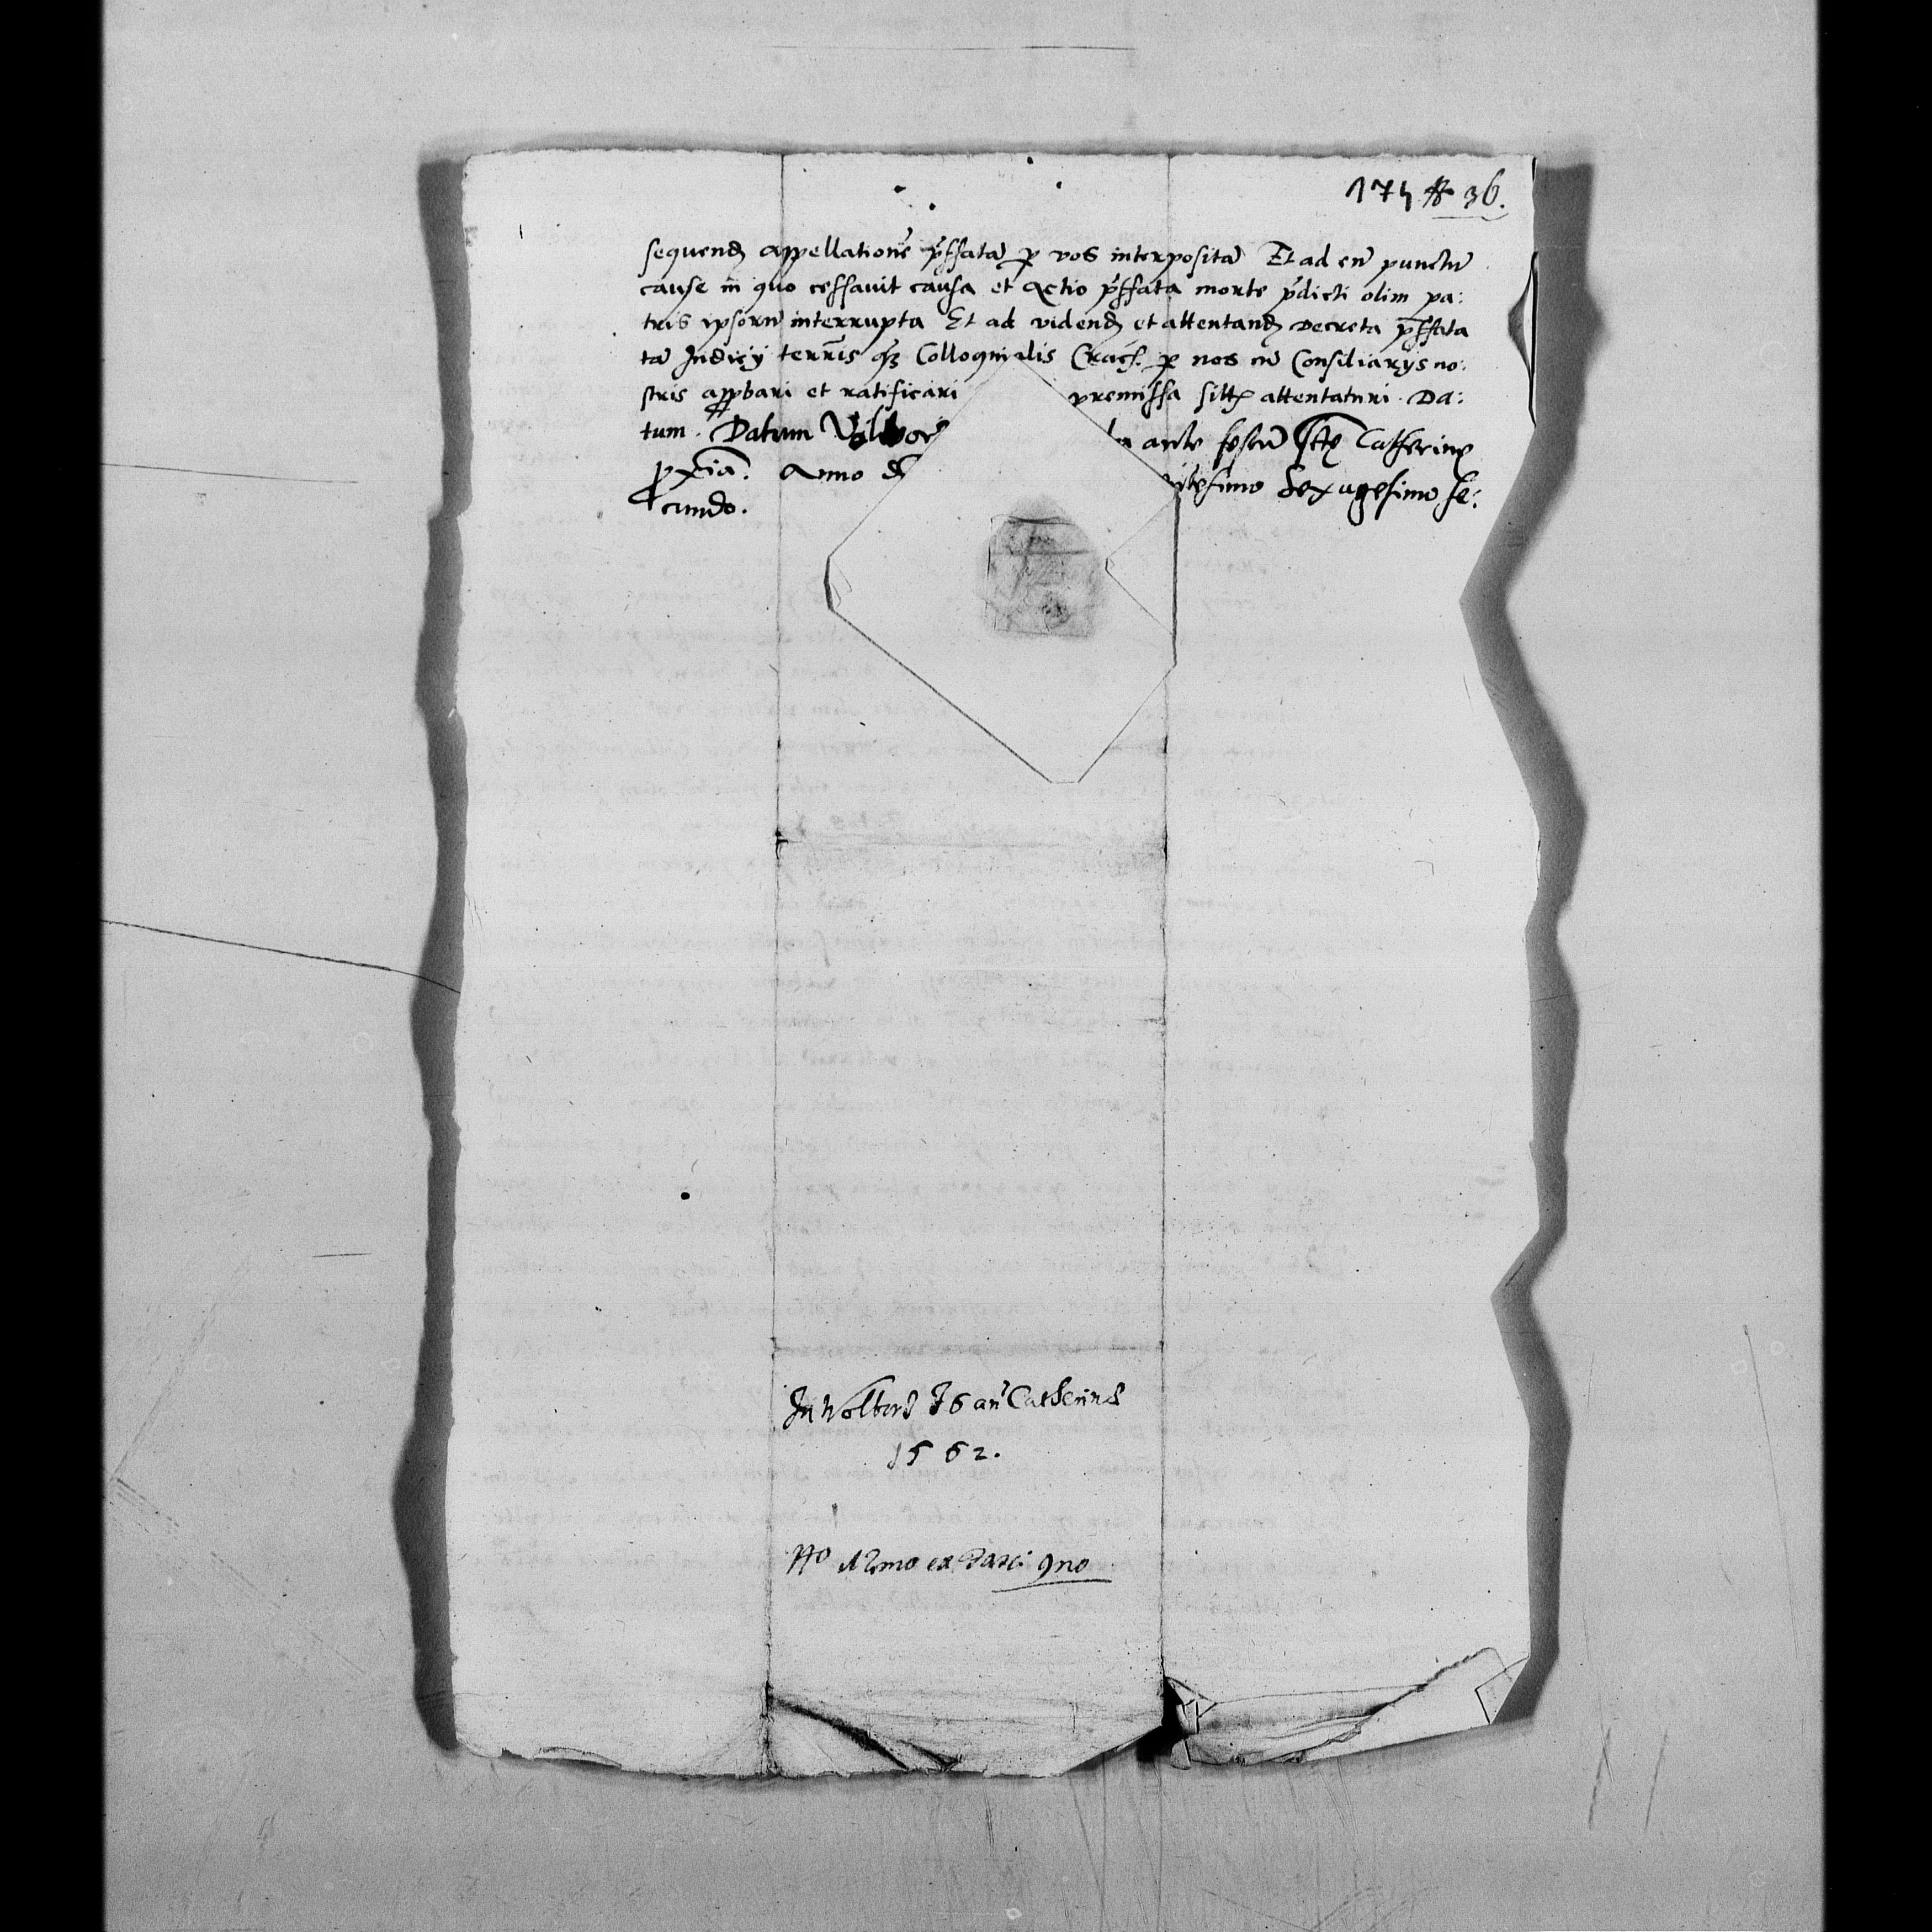 175 # 36.
sequend appellatione pffata p vos interposita Et ad eu punctu
cause in quo cessavit causa et actio pffata morte pdicti olim pa:
tris ipsoru interrupta Et ad vidend et attentand Decreta pffata
ta Judicij terris qz Colloquialis Crac. p nos cu Consiliarijs no:
stris appbari et ratificari premissa sitis attentaturi. Da:
tum. Datum Volbor ante festu scte Catherine
pxia. Anno d sexagesimo se:
cundo.
In Wolborz an Catherine
1562.
No ex 9no